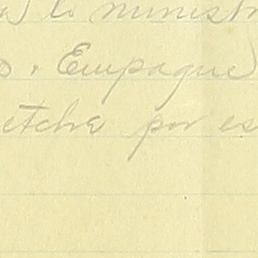 lo ministr
. Empaque
etche por es